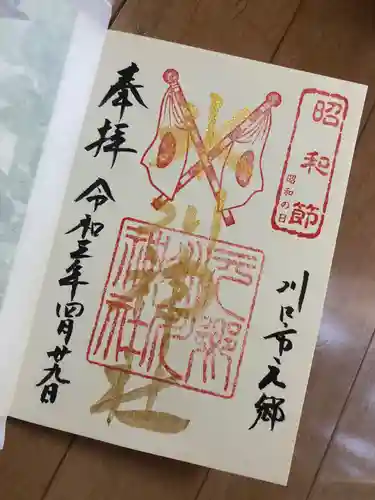 昭和節
昭和の日
川口市元郷
氷川神社
奉拝
令和三年四月廿九日